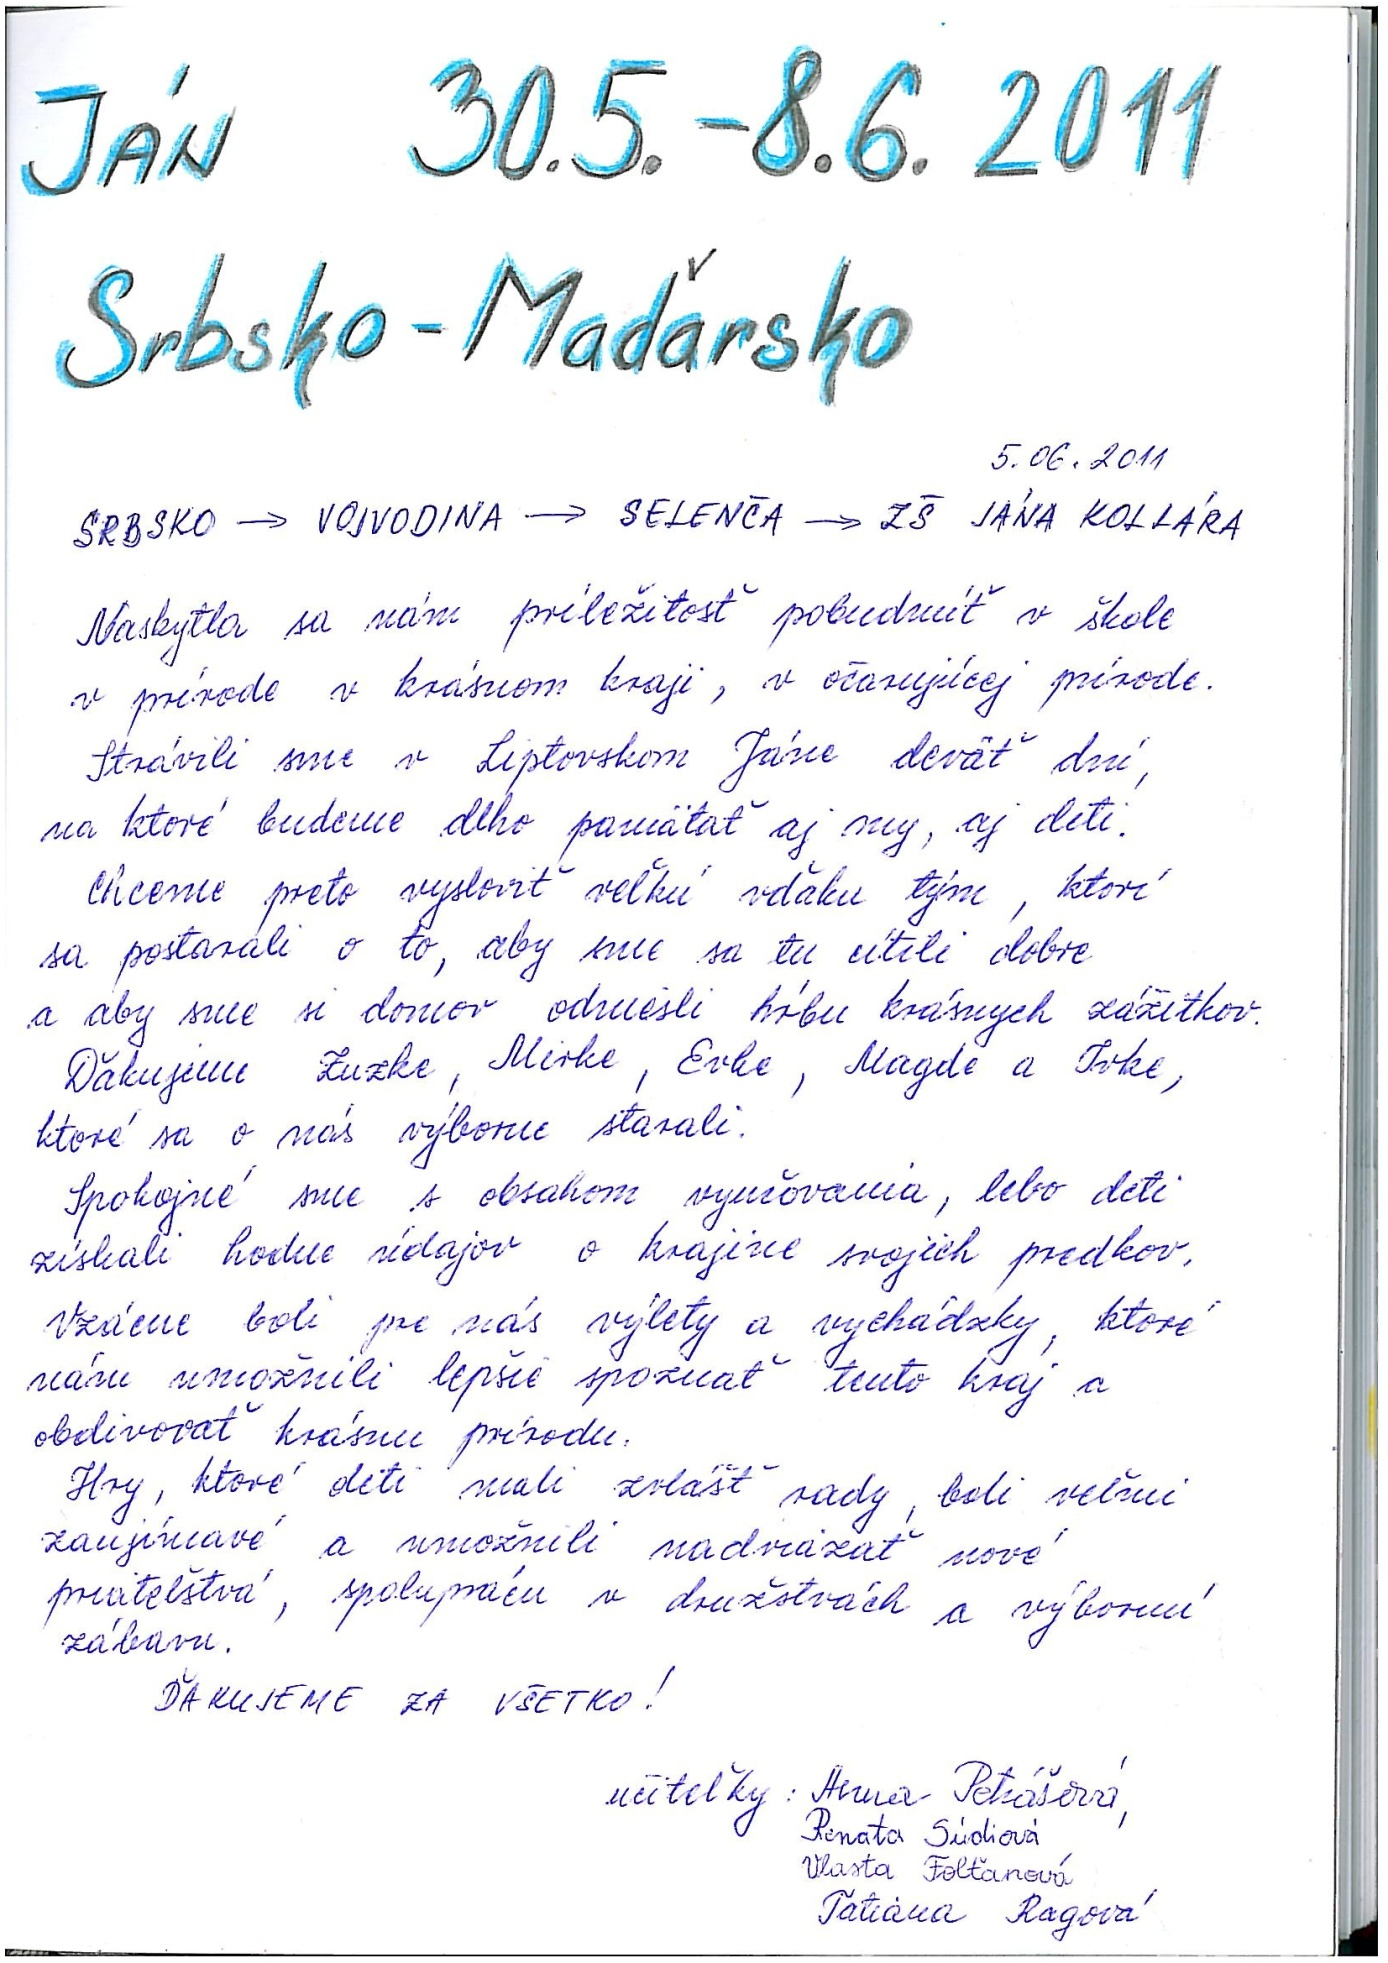 JÁN 30.5.-8.6. 2011
Srbsko - Maďarsko
5.06.2011
SRBSKO → VOJVODINA → SELENČA → ZŠ JÁNA KOLLÁRA
Naskytla sa nám príležitosť pobudnúť v škole
v prírode v krásnom kraji, v očarujúcej prírode.
Strávili sme v Liptovskom Jáne deväť dní,
na ktoré budeme dlho pamätať aj my, aj deti.
Chceme preto vysloviť veľkú vďaku tým, ktorí
sa postarali o to, aby sme sa tu cítili dobre
a aby sme si domov odniesli hŕbu krásnych zážitkov.
Ďakujeme Zuzke, Mirke, Evke, Magde a Ivke,
ktoré sa o nás výborne starali.
Spokojné sme s obsahom vyučovania, lebo deti
získali hodne údajov o krajine svojich predkov.
Vzácne boli pre nás výlety a vychádzky, ktoré
nám umožnili lepšie spoznať tento kraj a
obdivovať krásnu prírodu.
Hry, ktoré deti mali zvlášť rady, boli veľmi
zaujímavé a umožnili nadviazať nové
priateľstvá, spoluprácu v družstvách a výbornú
zábavu.
ĎAKUJEME ZA VŠETKO!
učiteľky: Anna Petrášová,
Renata Súdiová
Vlasta Folťanová
Tatiana Ragová